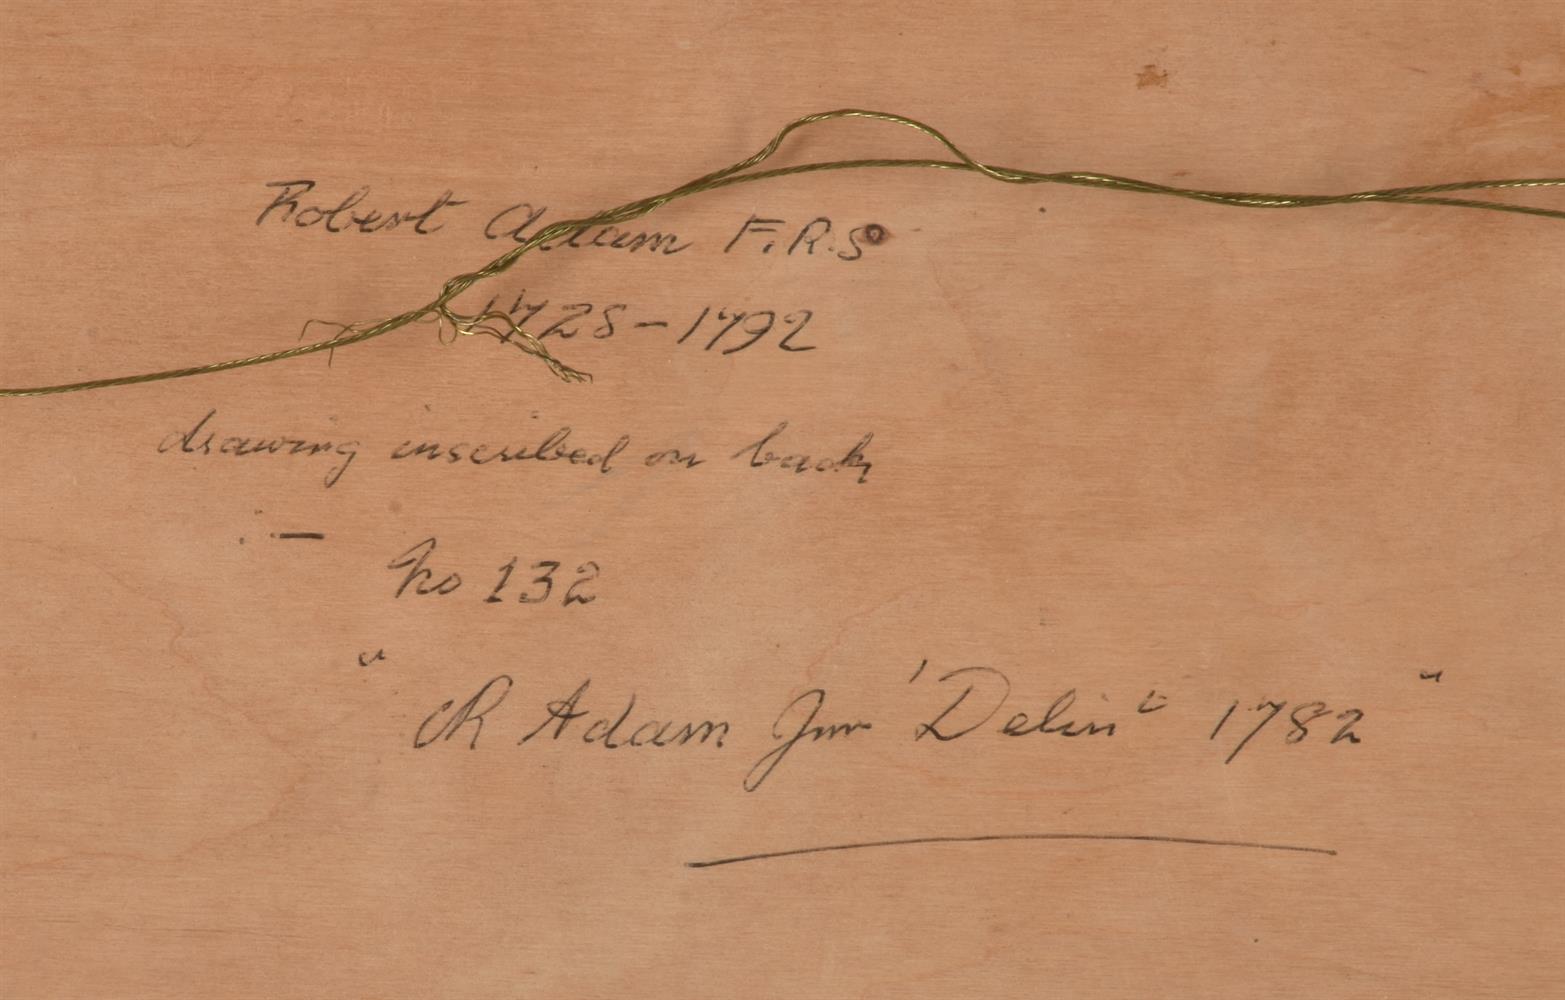 Robert Adam F.R.S
1728-1792
drawing inscribed on back
.—
No 132
"R Adam Jnr 'Delin t 1782"